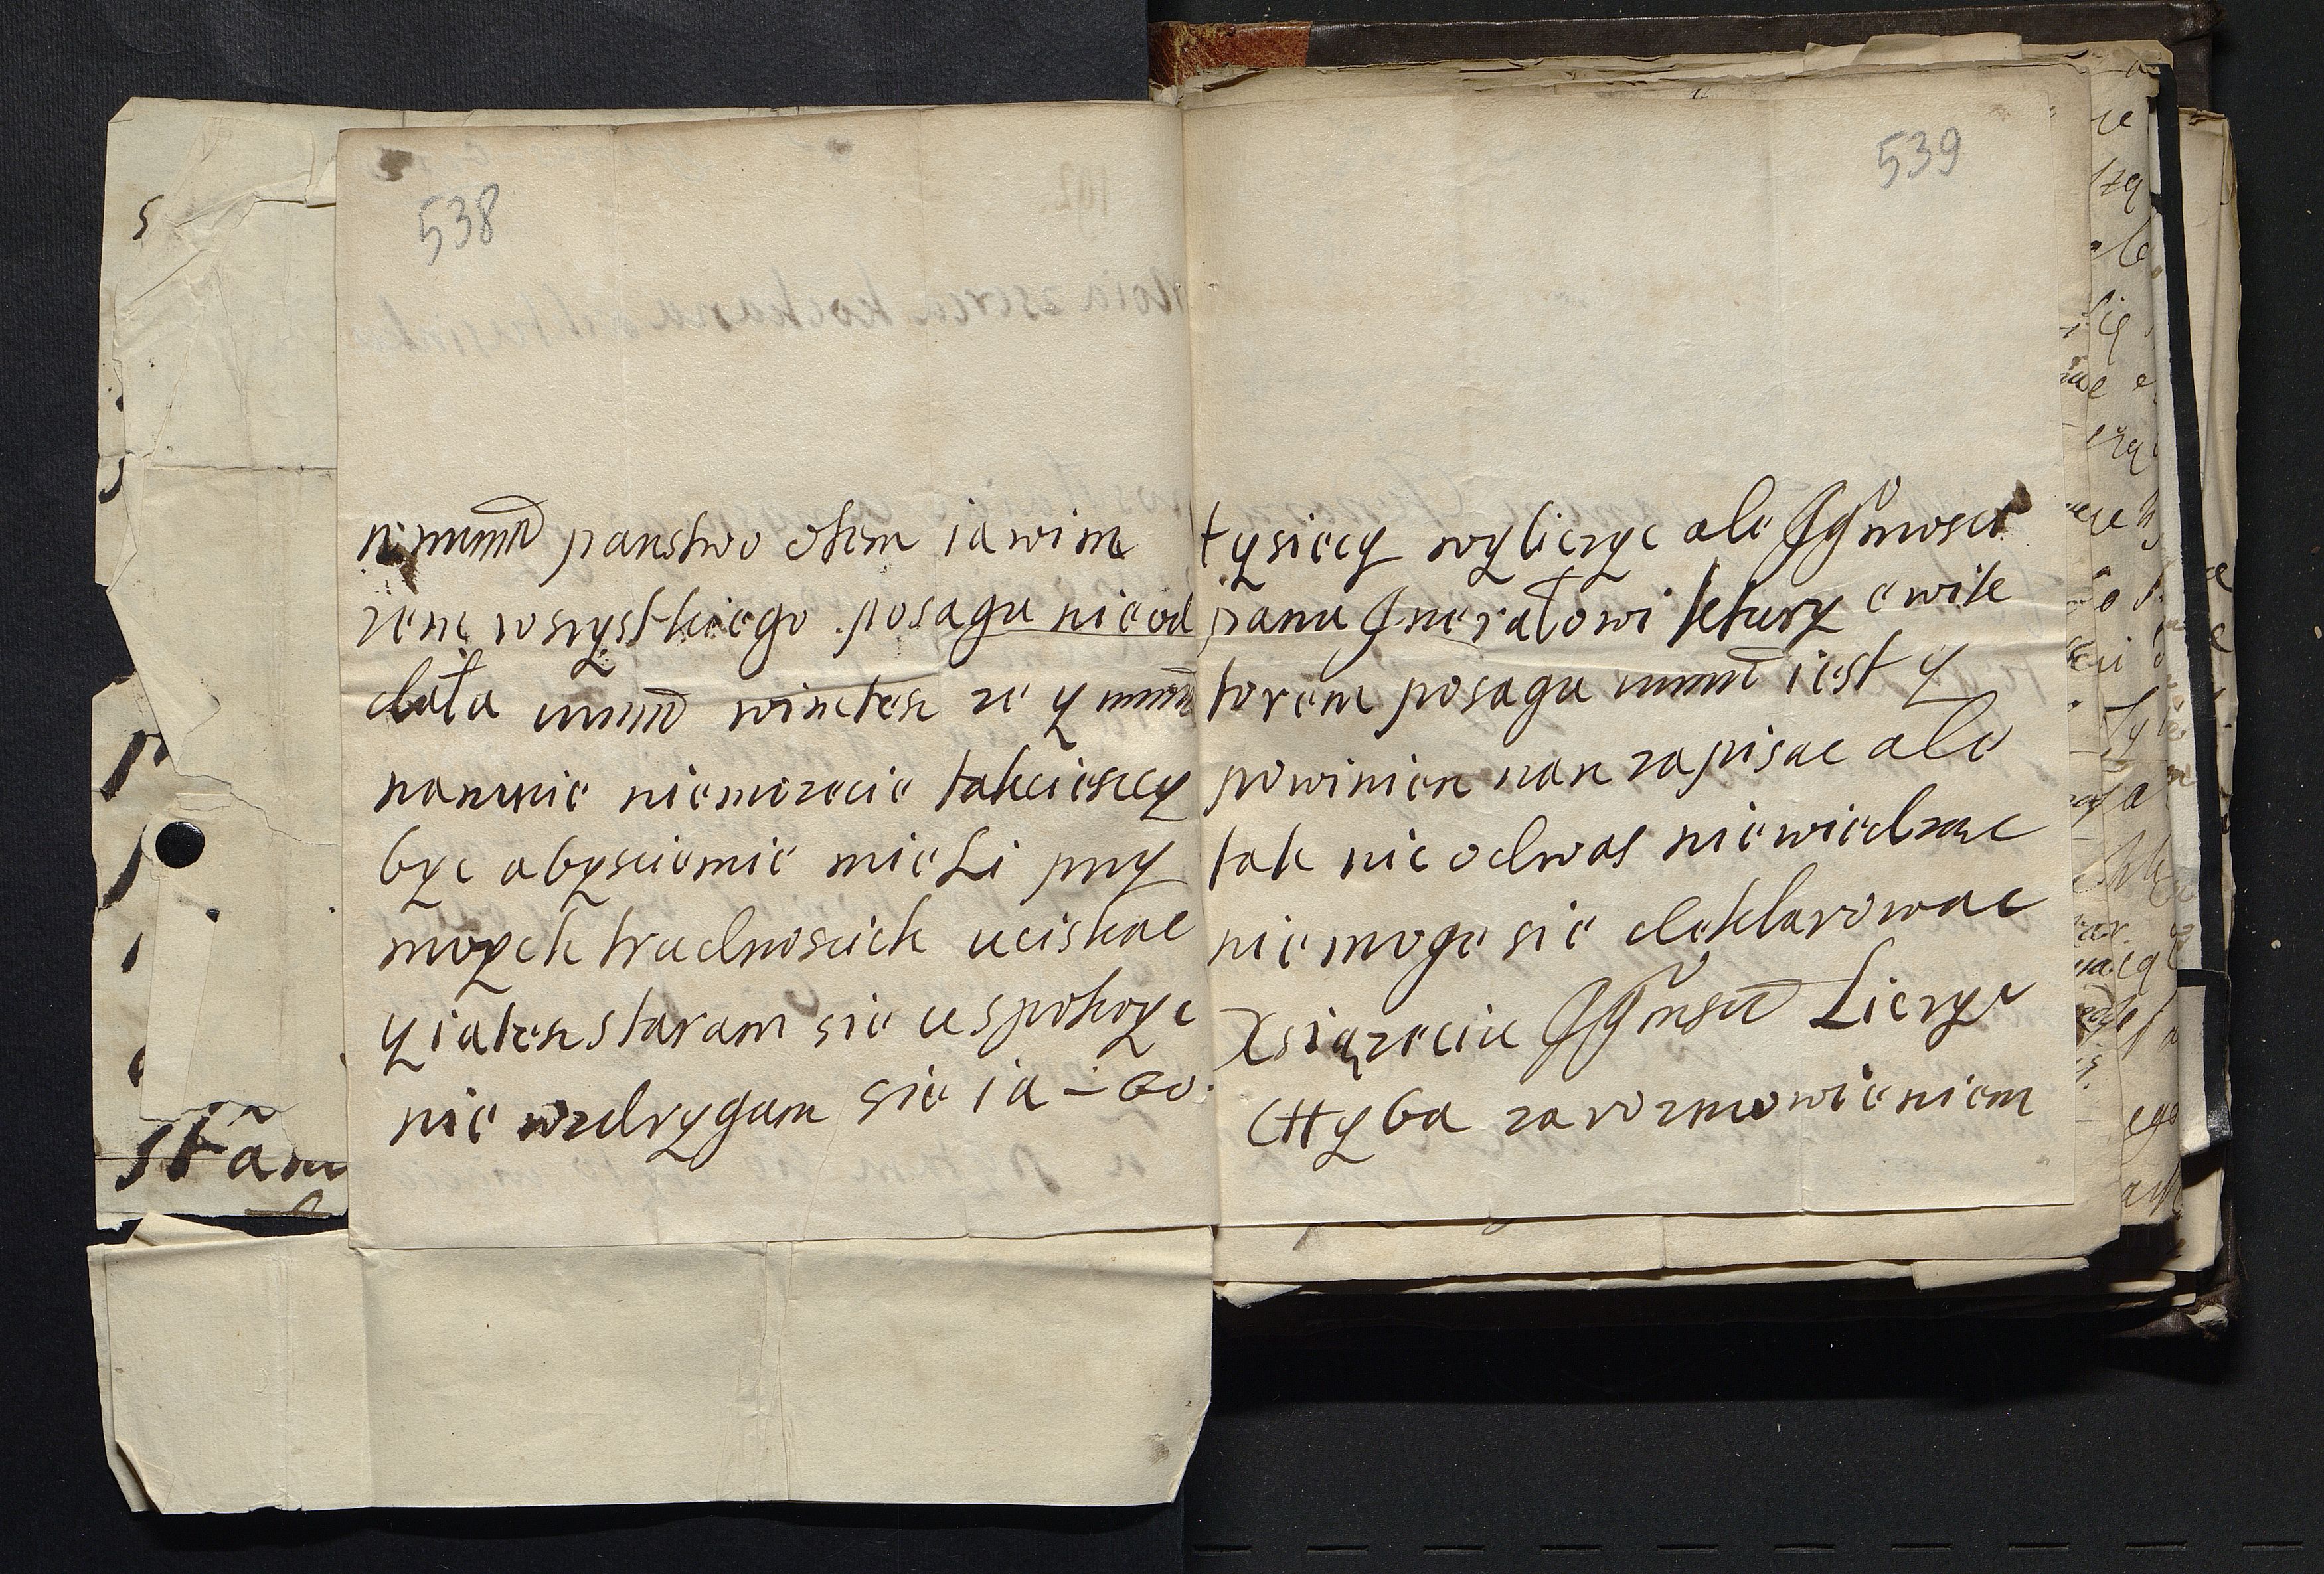 538
panstwo otem ia wim
zem wszystkiego posagu nie od
dała wmm wimtesz ze y wmm
namnie niemozecie takciescy
byc abysciemie mieli przy
moych trudnoscich uciskac
y iatesz staram sie uspokoyc
nie wzdrygam sie ia – bo
539
tysiecy wyliczyc ale Jg°mosci
panu Jneralowi ktury ewik
torem posagu wmm iest y
powinien nan zapisac ale
tak nic odwas niewiedzac
nie moge sie deklarowac
Xsiązeciu Jg°msci Liczyc
Chyba za rozmowieniem